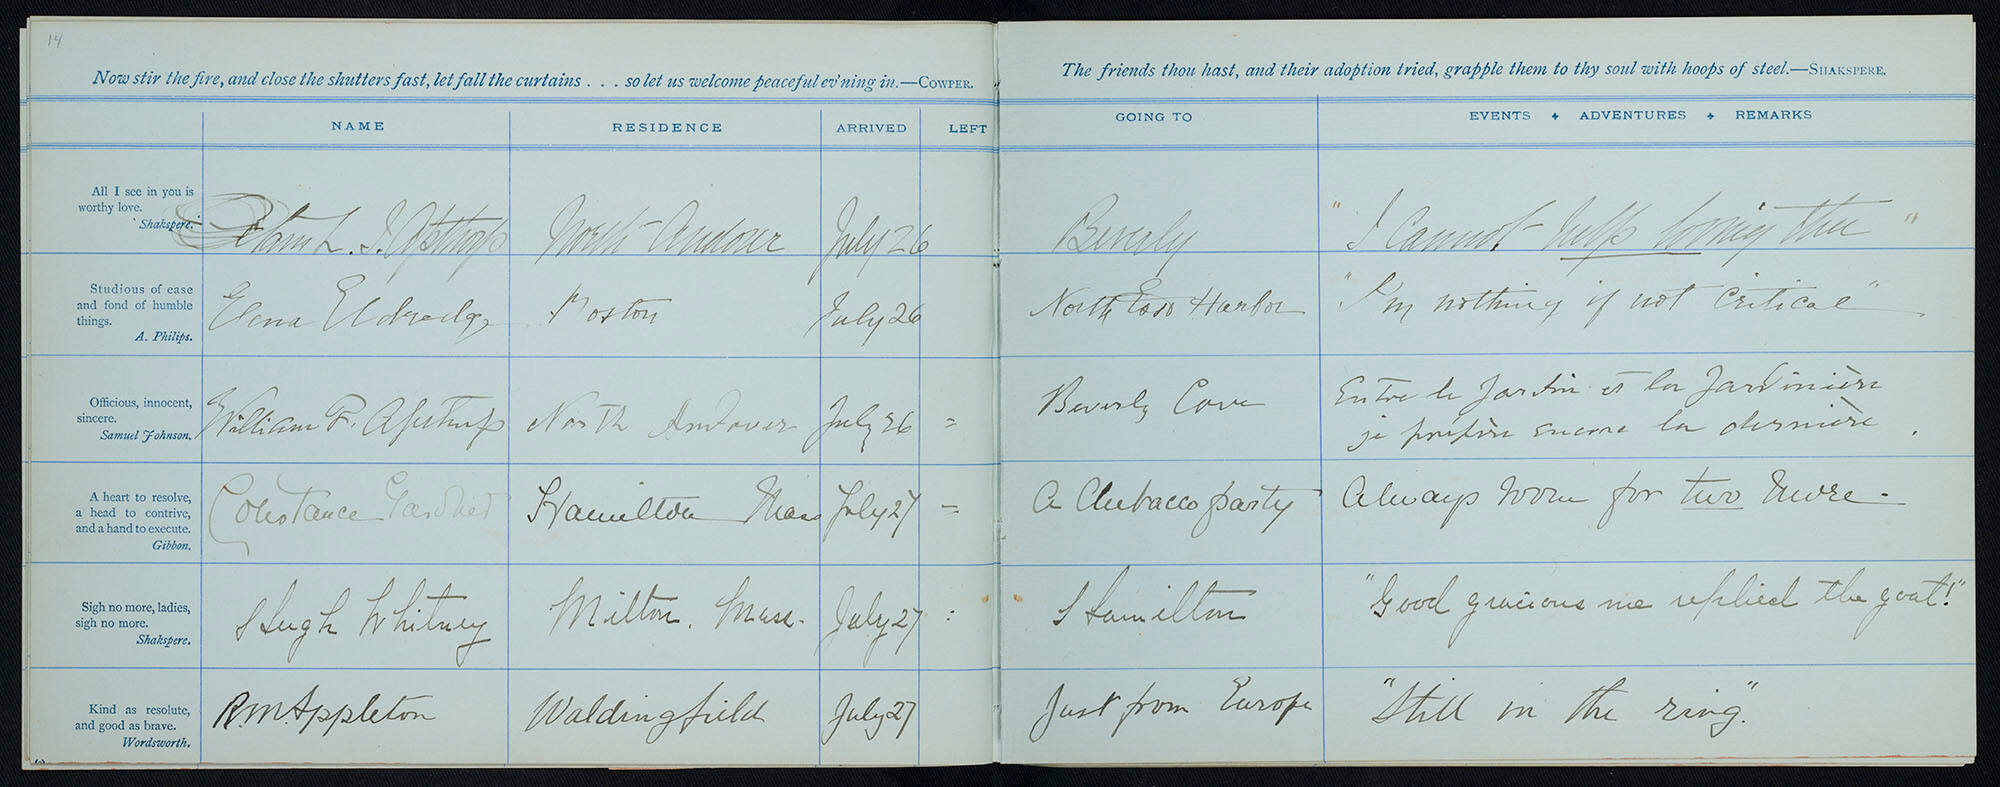 14
Now stir the fire, and close the shutters fast, let fall the curtains . . . so let us welcome peaceful ev'ning in.—COWPER.
The friends thou hast, and their adoption tried, grapple them to thy soul with hoops of steel.—SHAKSPERE.
NAME RESIDENCE ARRIVED LEFT GOING TO EVENTS + ADVENTURES + REMARKS
All I see in you is
worthy love.
Shakspere.
J. Apthorp North Andover July 26 Beverly "I cannot help loving thee"
Studious of ease
and fond of humble
things.
A. Philips.
Edna Eldredge Boston July 26 North East Harbor "I'm nothing if not critical"
Officious, innocent,
sincere.
Samuel Johnson.
William F. Apthorp North Andover July 26 = Beverly Cove Entre le jardin et la jardinière
je préfère encore la dernière.
A heart to resolve,
a head to contrive,
and a hand to execute.
Gibbon.
Constance Gardner Hamilton Mass July 27 = A Chebacco party Always room for two more -
Sigh no more, ladies,
sigh no more.
Shakspere.
Hugh Whitney Milton. Mass. July 27 : Hamilton "Good gracious me replied the goat!"
Kind as resolute,
and good as brave.
Wordsworth.
R.M. Appleton Waldingfield July 27 Just from Europe "Still in the ring."